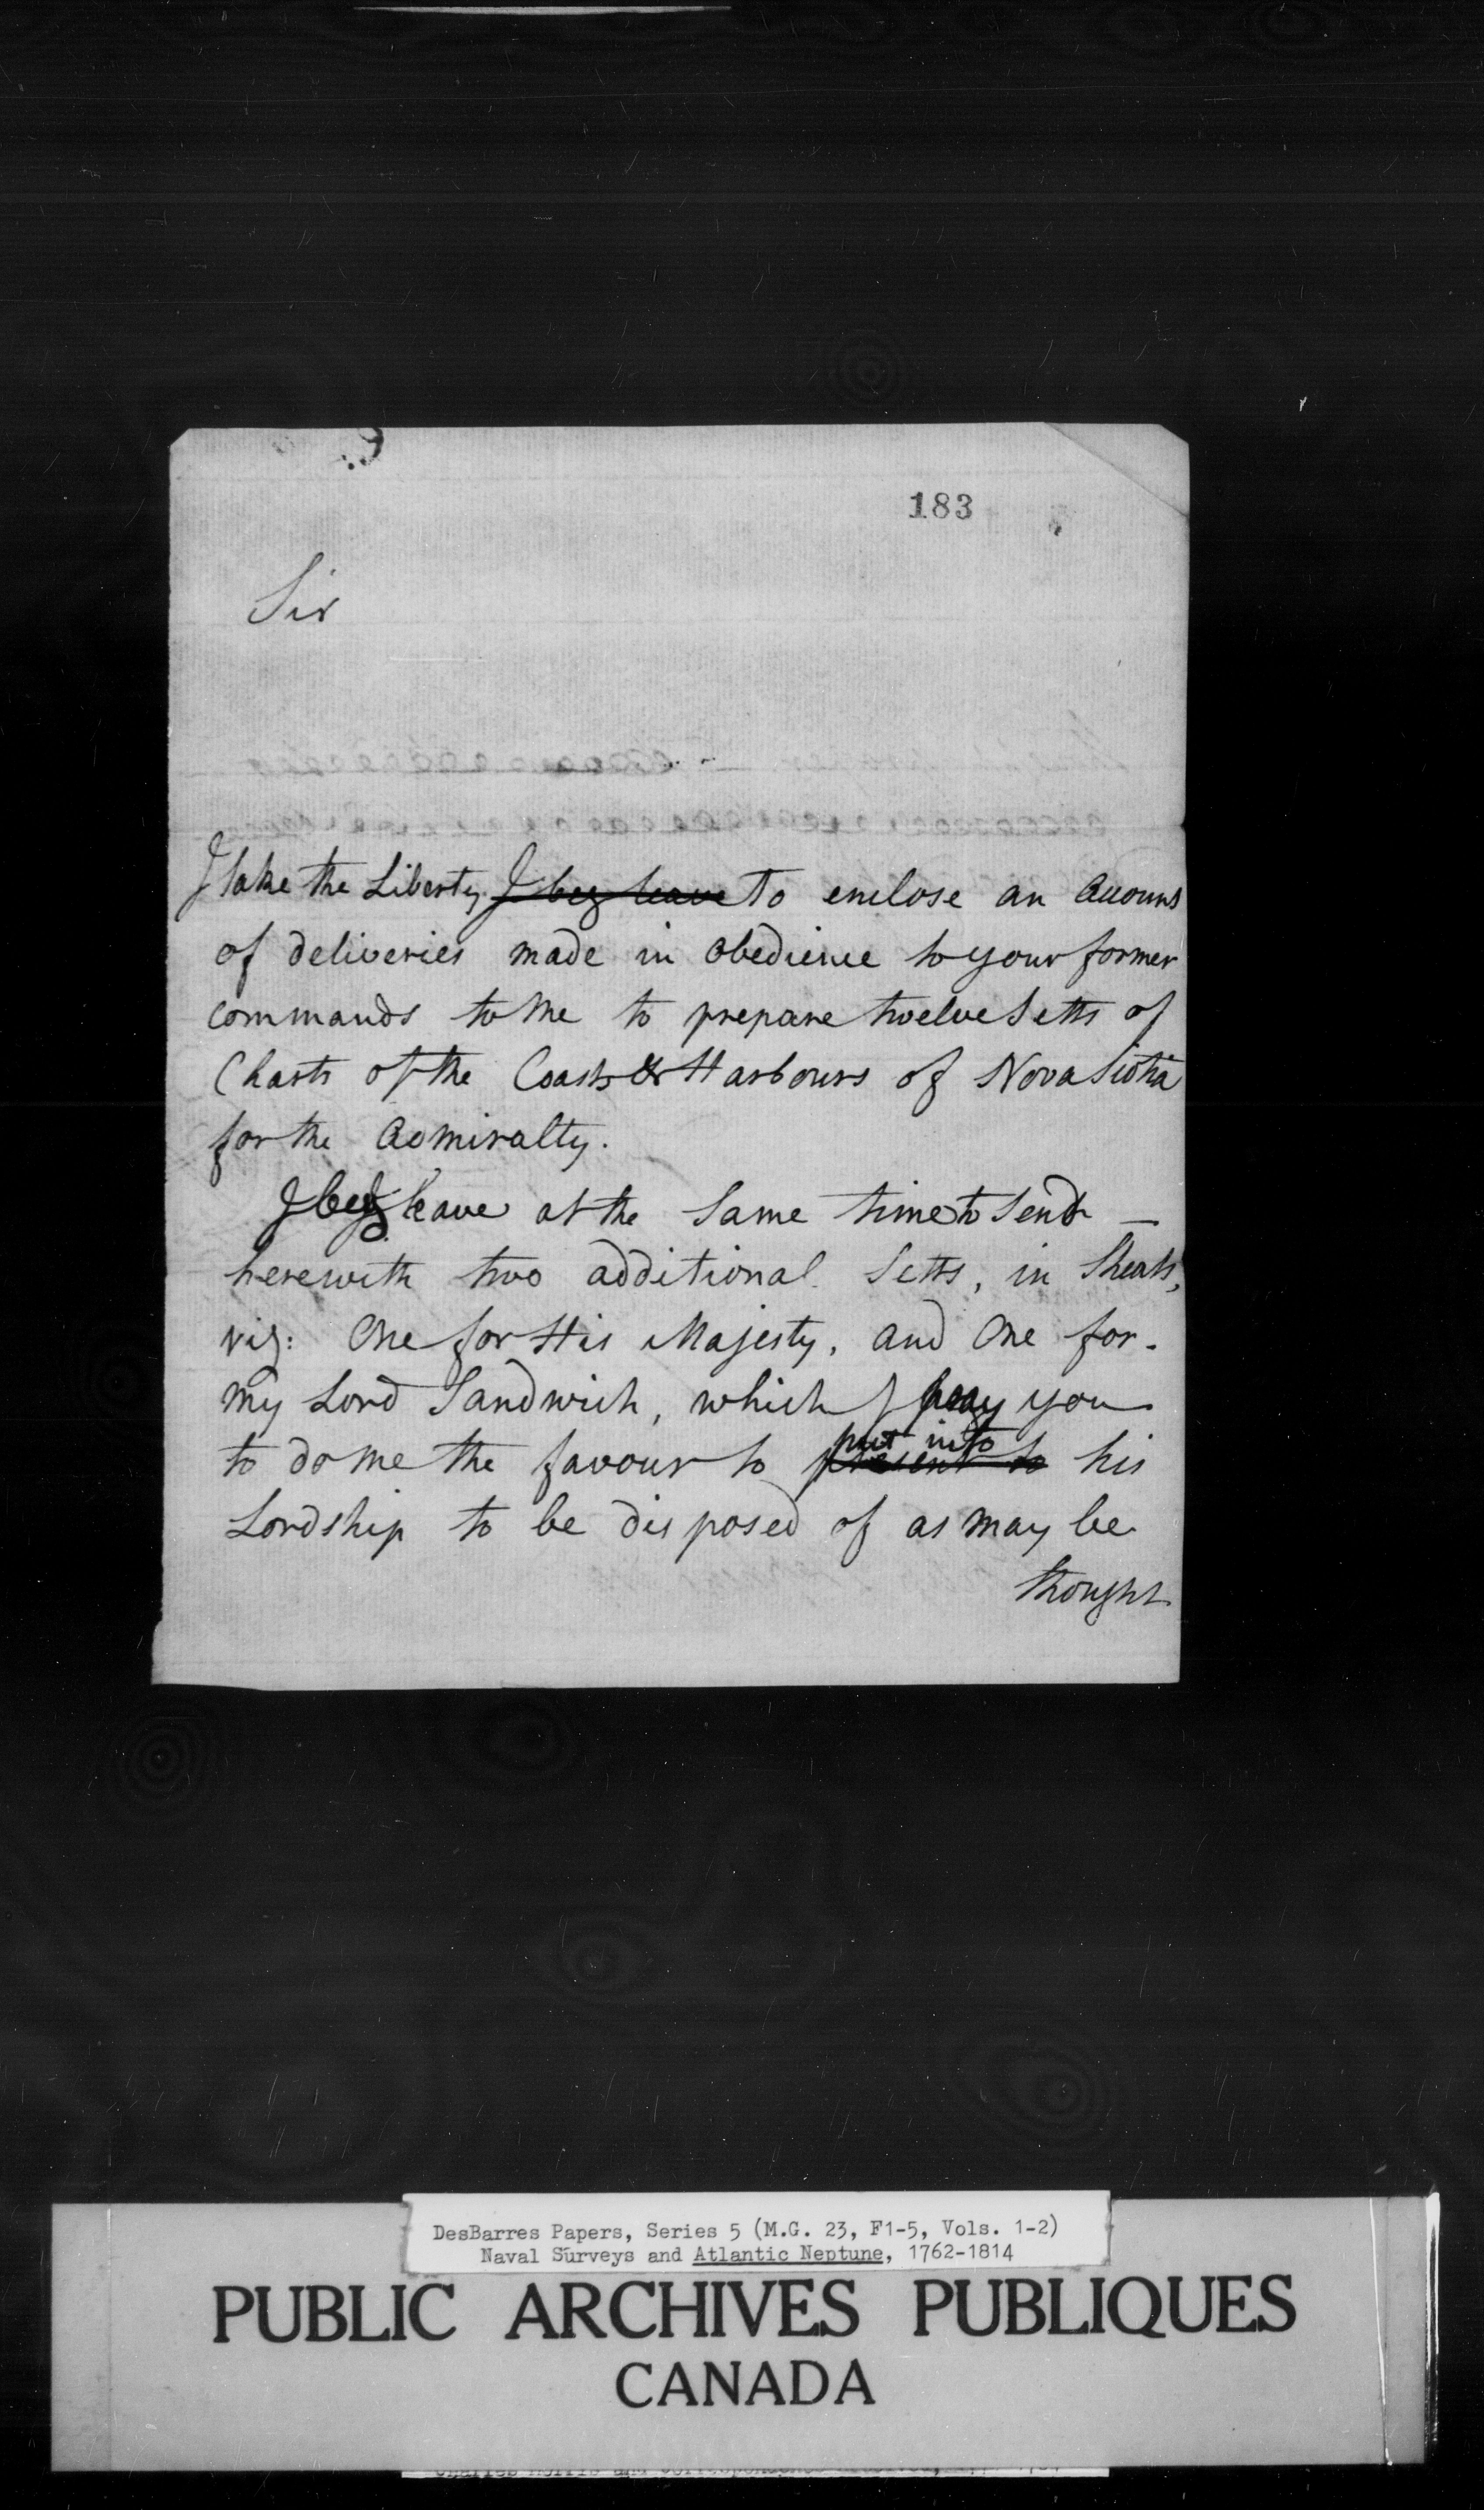 183
Sir
I take the Liberty I beg leave To enclose an Account
of deliveries made in obedience to your former
commands to me to prepare twelve Setts of
Charts of the Coasts & Harbours of Nova Scotia
for the Admiralty.
I beg leave at the Same time to Send —
herewith two additional Setts, in Sheets,
viz: One for His Majesty, and One for
my Lord Sandwich, which I pray you
put into
to do me the favour to present to his
Lordship to be disposed of as may be
thought
DesBarres Papers, Series 5 (M.G. 23, F1-5, Vols. 1-2)
Naval Surveys and Atlantic Neptune, 1762-1814
PUBLIC ARCHIVES PUBLIQUES
CANADA